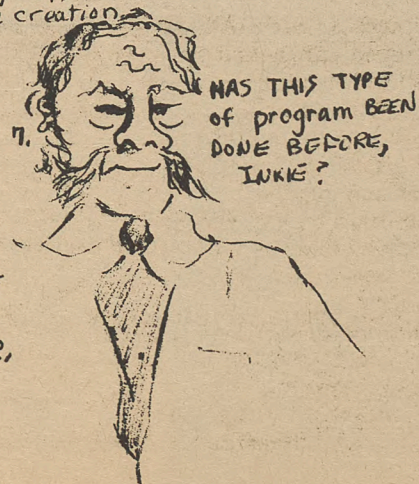 creation
HAS THIS TYPE
of program BEEN
DONE BEFORE,
INKIE?
7.